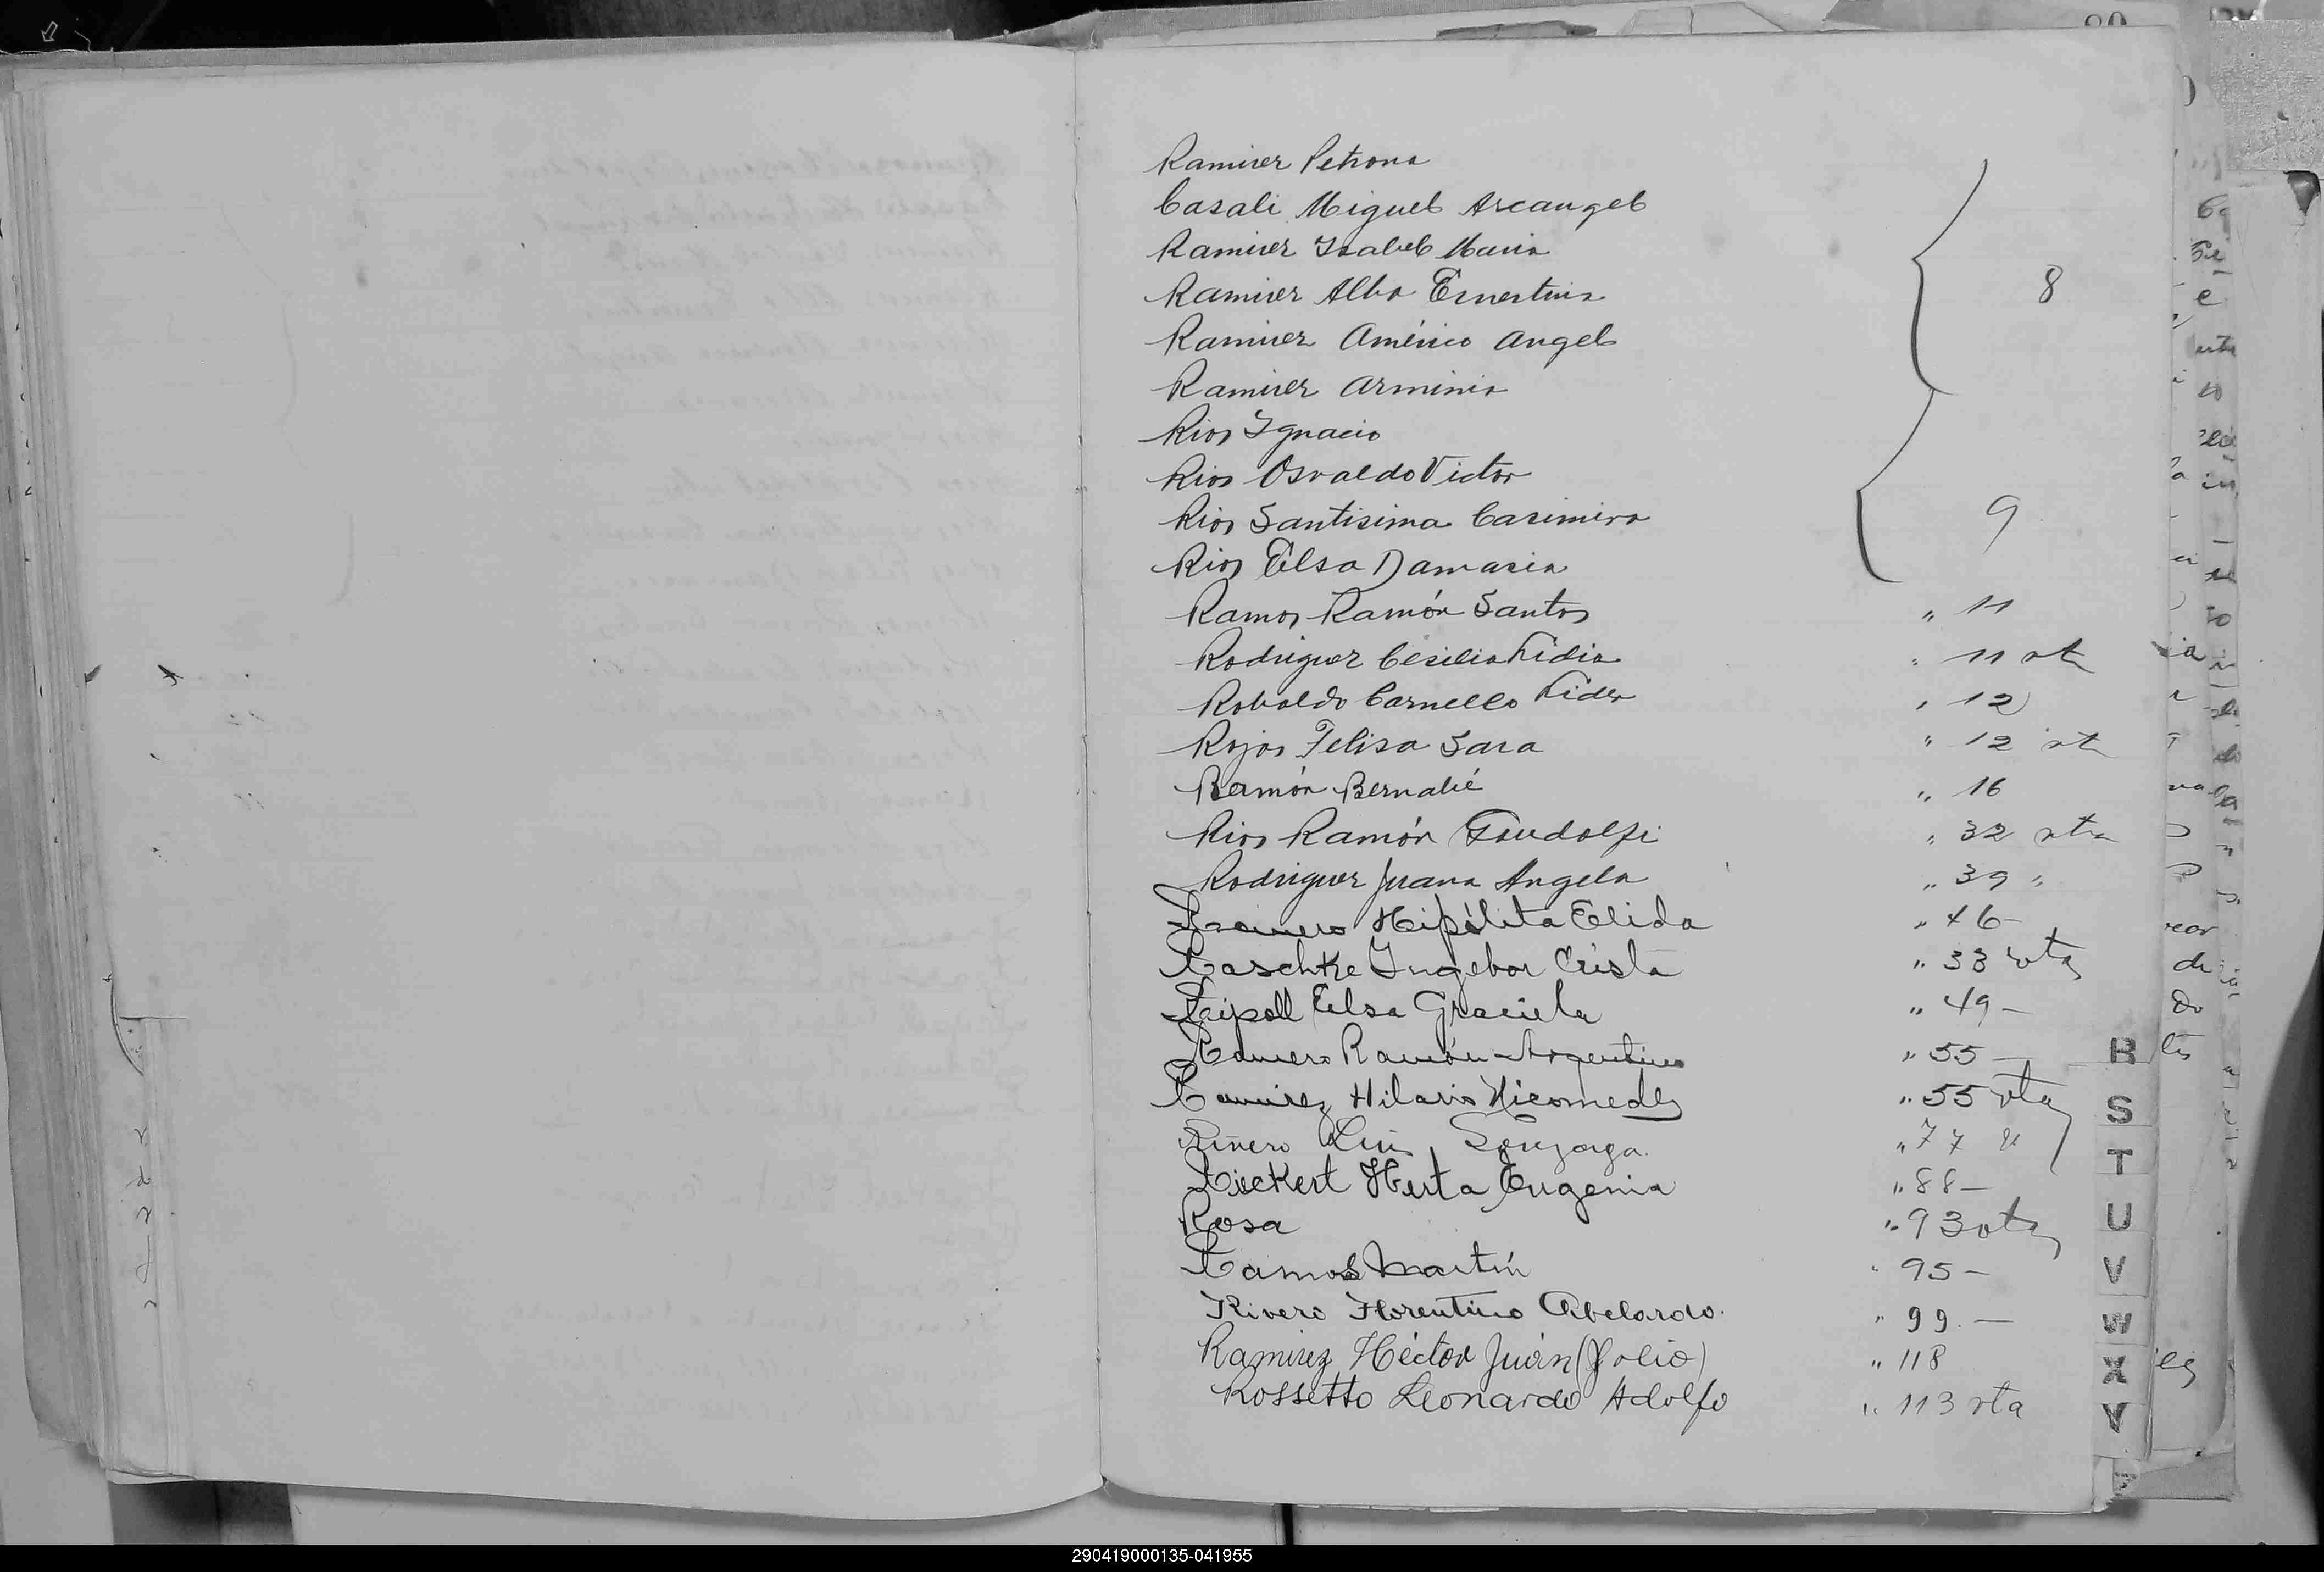 Ramirez Petrona
Casali Miguel Arcangel
Ramirez Isabel Maria
Ramirez Alba Ernestina
8
Ramirez Américo Angel
Ramirez Arminia
Rios Ignacio
Rios Osvaldo Victor
Rios Santisima Casimira
9
Rios Elsa Damasia
Ramos Ramón Santos " 11
Rodriguez Cesilia Lidia " 11 vta
Robaldo Carmello Lider " 12
Rojas Felisa Sara " 12 vta
Ramón Bernabé " 16
Rios Ramón Gaudolfi " 32 vta
Rodriguez Juana Angela " 39 "
Romero Hipólita Elida " 46 -
Raschke Ingebor Crista " 33 vta
Ripoll Elsa Graciela " 49 -
Romero Ramón Argentino " 55 -
R
Ramirez Hilario Nicomedes " 55 vta
S
Riñero Luis Gonzaga " 77 "
T
Rieckert Herta Eugenia " 88 -
Rosa " 93 vta
U
Ramos Martín " 95 -
V
Rivero Florentino Abelardo. " 99. -
W
Ramirez Héctor Juán (folio) " 118
X
Rossetto Leonardo Adolfo " 113 vta
Y
290419000135-041955